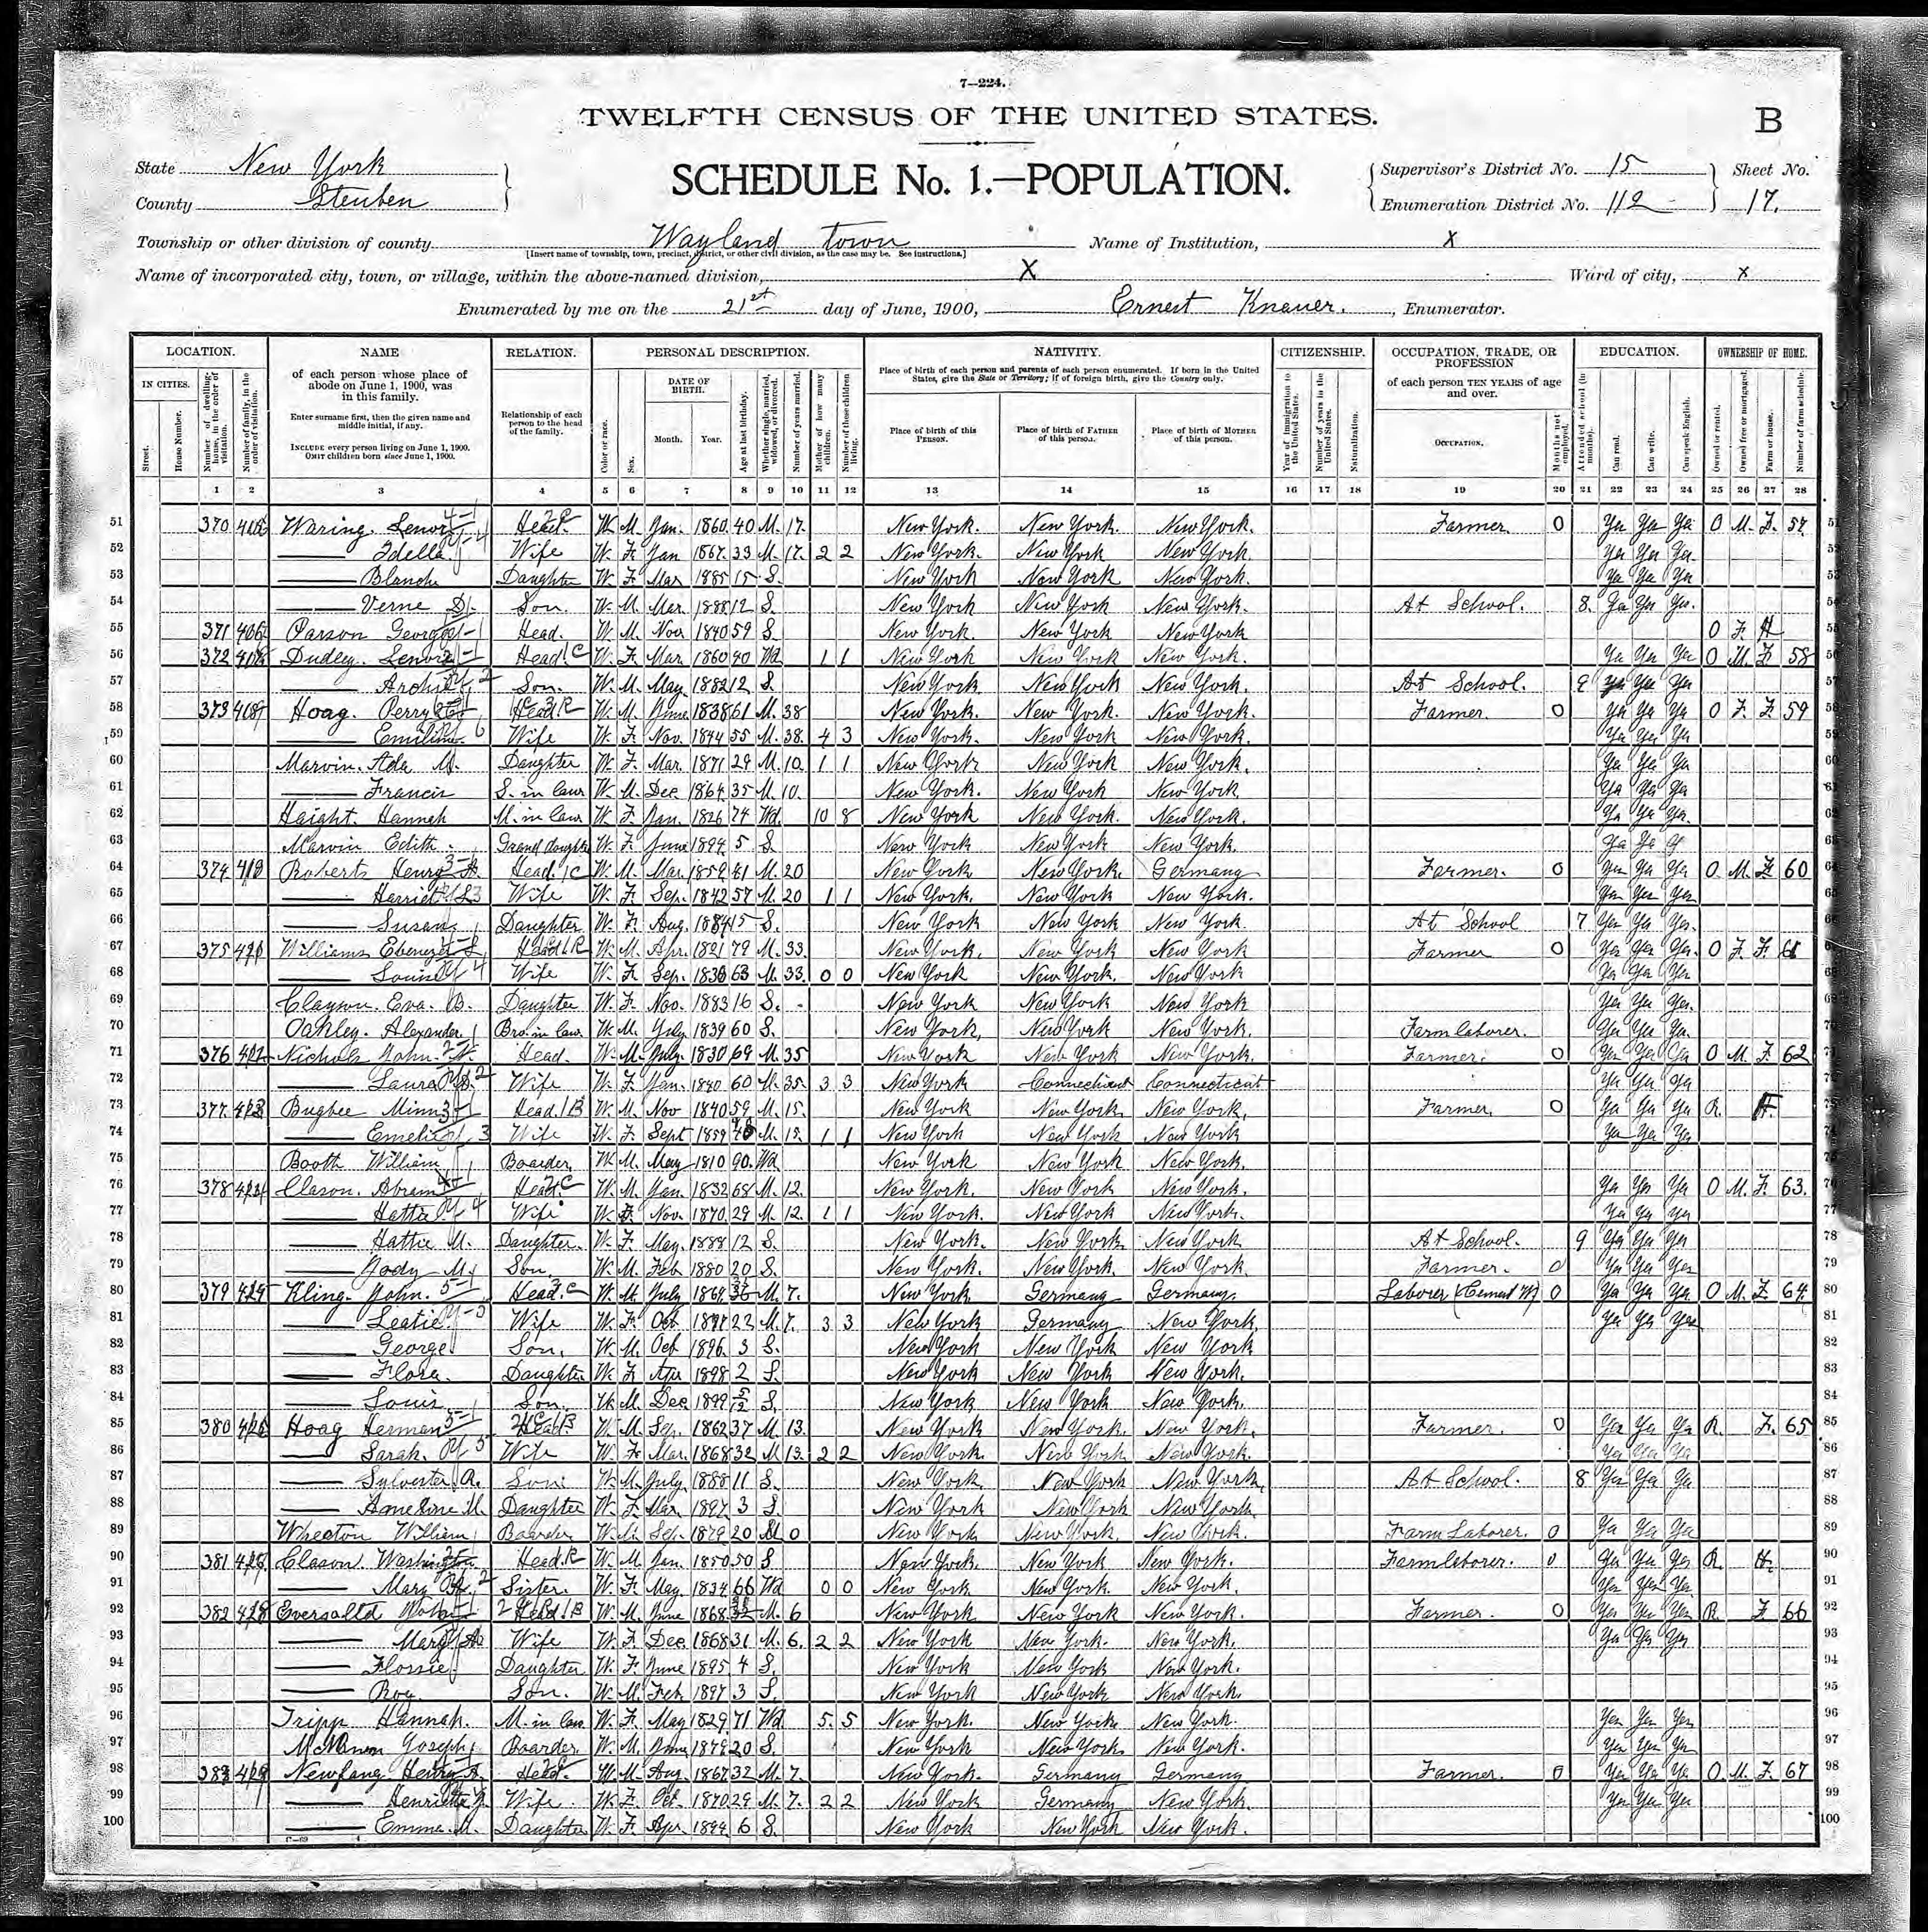 7—224.
TWELFTH CENSUS OF THE UNITED STATES.
B
State New York
SCHEDULE No. 1.—POPULATION.
Supervisor's District No. 15
Sheet No.
County Steuben
Enumeration District No. 112
17.
Township or other division of county Wayland town
Name of Institution, X
[Insert name of township, town, precinct, district, or other civil division, as the case may be. See instructions.]
Name of incorporated city, town, or village, within the above-named division, X
Ward of city, X
Enumerated by me on the 21st day of June, 1900, Ernest Knauer., Enumerator.
LOCATION. NAME RELATION. PERSONAL DESCRIPTION. NATIVITY. CITIZENSHIP. OCCUPATION, TRADE, OR PROFESSION EDUCATION. OWNERSHIP OF HOME.
IN CITIES. Street. House Number. Number of dwelling-house, in the order of visitation. Number of family, in the order of visitation.
of each person whose place of abode on June 1, 1900, was in this family.
Enter surname first, then the given name and middle initial, if any.
INCLUDE every person living on June 1, 1900. OMIT children born since June 1, 1900.
Relationship of each person to the head of the family.
Color or race. Sex. DATE OF BIRTH. Month. Year. Age at last birthday. Whether single, married, widowed, or divorced. Number of years married. Mother of how many children. Number of these children living.
Place of birth of each person and parents of each person enumerated. If born in the United States, give the State or Territory; if of foreign birth, give the Country only.
Place of birth of this PERSON. Place of birth of FATHER of this person. Place of birth of MOTHER of this person.
Year of immigration to the United States. Number of years in the United States. Naturalization.
of each person TEN YEARS of age and over.
OCCUPATION. Months not employed. Attended school (in months). Can read. Can write. Can speak English. Owned or rented. Owned free or mortgaged. Farm or house. Number of farm schedule.
1 2 3 4 5 6 7 8 9 10 11 12 13 14 15 16 17 18 19 20 21 22 23 24 25 26 27 28
51 370 Waring. Head W. M. Jan. 1860 40 M. 17. New York. New York. New York. Farmer 0 O M. F. 57
52 Idella Wife W. F. Jan 1867 33 M. 17. 2 2 New York. New York New York.
53 Blanche Daughter W. F. Mar 1885 15 S. New York New York New York.
54 Verne D. Son. W. M. Mar. 1888 12 S. New York New York New York. At School. 8.
55 371 Parson George Head. W. M. Nov 1840 59 S. New York. New York New York O F. H
56 372 Dudley. Head W. F. Mar 1860 40 Wd 1 1 New York New York New York. O M. F 58
57 Archie Son. W. M. May 1882 12 S. New York New York New York. At School. 9
58 373 Hoag. Perry Head W. M. June 1838 61 M. 38 New York. New York. New York. Farmer. 0 O F. F. 59
59 Wife W. F. Nov. 1844 55 M. 38. 4 3 New York. New York New York.
60 Marvin. Ada M. Daughter W. F. Mar. 1871 29 M. 10. 1 1 New York New York New York.
61 Francis S. in law W. M. Dec. 1864 35 M. 10. New York. New York New York
62 Haight. Hannah M. in law W. F. Jan. 1826 74 Wd. 10 8 New York New York. New York.
63 Marvin Edith. Grand daughter W. F. June 1894 5 S. New York New York New York.
64 374 Roberts Henry Head W. M. Mar. 1859 41 M. 20 New York New York. Germany Farmer. 0 O M. F 60
65 Harriet Wife W. F. Sep. 1842 57 M. 20 1 1 New York. New York New York.
66 Susan Daughter W. F. Aug. 1884 15 S. New York New York New York At School 7
67 375 Williams Ebenezer Head W. M. Apr. 1821 79 M. 33. New York. New York New York Farmer 0 O F. F. 61
68 Louise Wife W. F. Sep. 63 M. 33. 0 0 New York New York. New York
69 Clayson. Eva. B. Daughter W. F. Nov. 1883 16 S. New York New York New York
70 Oakley. Alexander. Bro. in law W. M. July 1839 60 S. New York, New York New York. Farm laborer.
71 376 Nichols John. Head. W. M. July 1830 69 M. 35 New York New York New York. Farmer. 0 O M. F. 62
72 Laura Wife W. F. Jan. 1840 60 M. 35. 3 3 New York Connecticut Connecticut
73 377 Bugbee Head. W. M. Nov 1840 59 M. 15. New York New York. New York. Farmer. 0 R. H.
74 Wife W. F. Sept 1859 M. 15. 1 1 New York New York New York
75 Booth William Boarder. W. M. May 1810 90. Wd New York New York New York.
76 378 Clason. Abram Head W. M. Jan. 1832 68 M. 12. New York. New York New York. O M. F. 63.
77 Hattie Wife W. F. Nov. 1870 29 M. 12. 1 1 New York. New York New York.
78 Hattie M. Daughter. W. F. May. 1888 12 S. New York. New York New York At School. 9
79 Jody M. Son. W. M. Feb 1880 20 S. New York. New York. New York. Farmer. 0
80 379 Kling. John. Head. W. M. July M. 7. New York Germany Germany. Laborer (Cement W) 0 O M. F. 64
81 Wife W. F. Oct 22 M. 7. 3 3 New York Germany New York
82 George Son. W. M. Oct 1896 3 S. New York New York New York
83 Flora. Daughter W. F. Apr 1898 2 S. New York New York New York.
84 Louis Son. W. M. Dec. 1899 5/12 S. New York New York New York.
85 380 Hoag Herman Head. W. M. Sep. 1862 37 M. 13. New York New York. New York. Farmer. 0 R. F. 65
86 Sarah. Wife W. F. Mar. 1868 32 M 13. 2 2 New York. New York New York.
87 Sylvester A. Son W. M. July 1888 11 S. New York. New York New York. At School. 8
88 Daughter W. F. Mar. 1897 3 S. New York New York New York.
89 Wheeton William Boarder W. M. Sep. 1879 20 M 0 New York New York. New York. Farm Laborer. 0
90 381 Clason. Washington Head. W. M. Jan. 1850 50 S New York. New York New York. Farm laborer. 0 R. H.
91 Mary Sister. W. F. May. 1834 66 Wd 0 0 New York New York. New York.
92 382 Head W. M. June 1868 M. 6 New York New York New York. Farmer. 0 R. F 66
93 Mary Wife W. F. Dec. 1868 31 M. 6. 2 2 New York New York. New York.
94 Flossie Daughter W. F. June 1895 4 S. New York New York New York.
95 Roy. Son. W. M. Feb. 1897 3 S. New York New York New York.
96 Tripp Hannah. M. in law W. F. May 1829 71 Wd 5. 5 New York. New York New York.
97 Joseph Boarder. W. M. June 1879 20 S. New York New York. New York.
98 383 Newfang Henry Head W. M. Aug. 1867 32 M. 7. New York. Germany Germany Farmer. 0 O M. F. 67
99 Henrietta Wife. W. F. Oct. 1870 29 M. 7. 2 2 New York Germany New York.
100 Emma. M. Daughter W. F. Apr. 1894 6 S. New York New York New York.